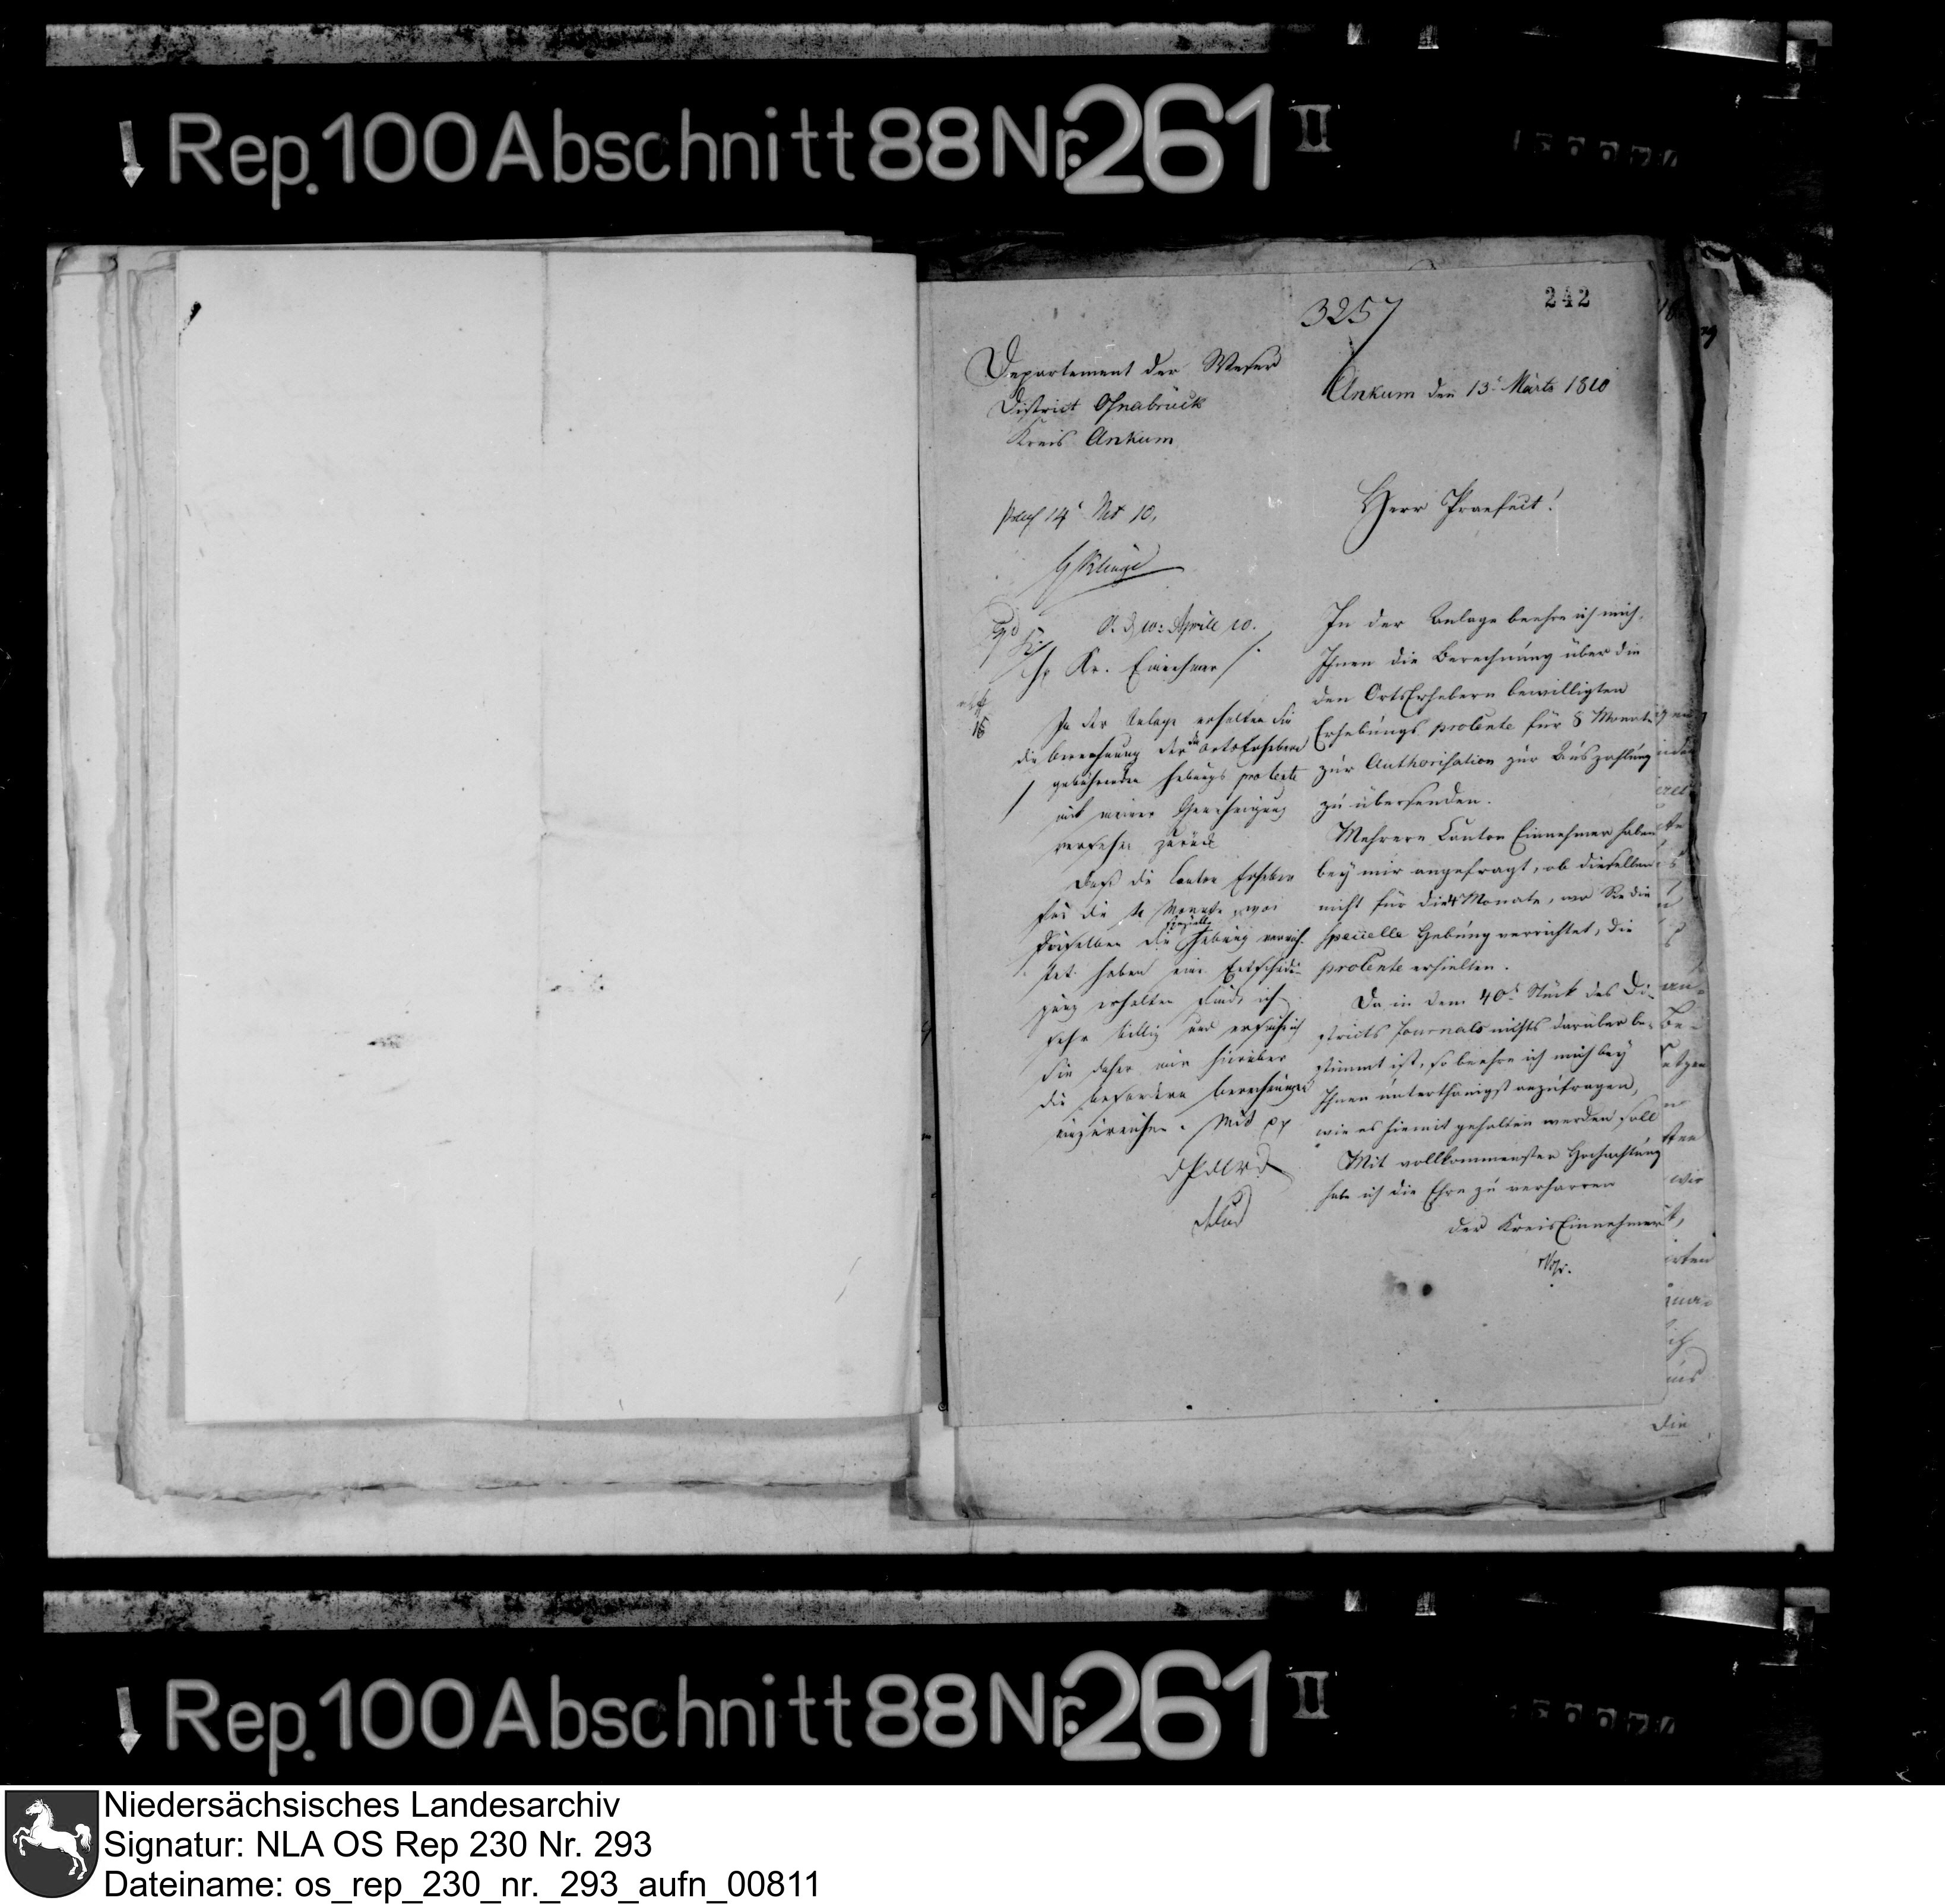 Rep. 100 Abschnitt 88 Nr. 261 II
242
3257
Departement der Weser
District Osnabrück
Kreis Ankum
Ankum den 13t Märts 1810
Herr Praefect!
In der Anlage beehre ich mich,
Ihnen die Berechnung über die
den OrtsErhebern bewilligten
Erhebungs procente für 8 Monate
zur Authorisation zur Auszahlung
zu übersenden.
Mehrere Canton Einnehmer haben
bey mir angefragt, ob dieselben
nicht für die 4 Monate, wo Sie die
specielle Hebung verrichtet, die
procente erhielten.
Da in dem 40t Stück des Di-
stricts Journals nichts darüber be-
stimmt ist, so beehre ich mich bey
Ihnen unterthänigst anzufragen,
wie es hiemit gehalten werden soll
Mit vollkommenster Hochachtung
habe ich die Ehre zu verharren
der KreisEinnehmer
praes 14t Mrt 10.
O. d 10: Aprill 10.
Kr. Einnehmer
In der Anlage erhalten Sie
die Berechnung der den OrtsErhebern
gebührenden Hebungs procente
mit meiner Genehmigung
versehen zurück
Daß die Canton Erheber
für die 4 Monate, wo
dieselben die specielle Hebung verrich-
tet haben eine Entschädi-
gung erhalten finde ich
sehr billig und ersuche ich
Sie daher mir hierüber
die besondern Berechnungen
einzureichen. Mit pp
DPdWD
Rep. 100 Abschnitt 88 Nr. 261 II
Niedersächsisches Landesarchiv
Signatur: NLA OS Rep 230 Nr. 293
Dateiname: os_rep_230_nr._293_aufn_00811